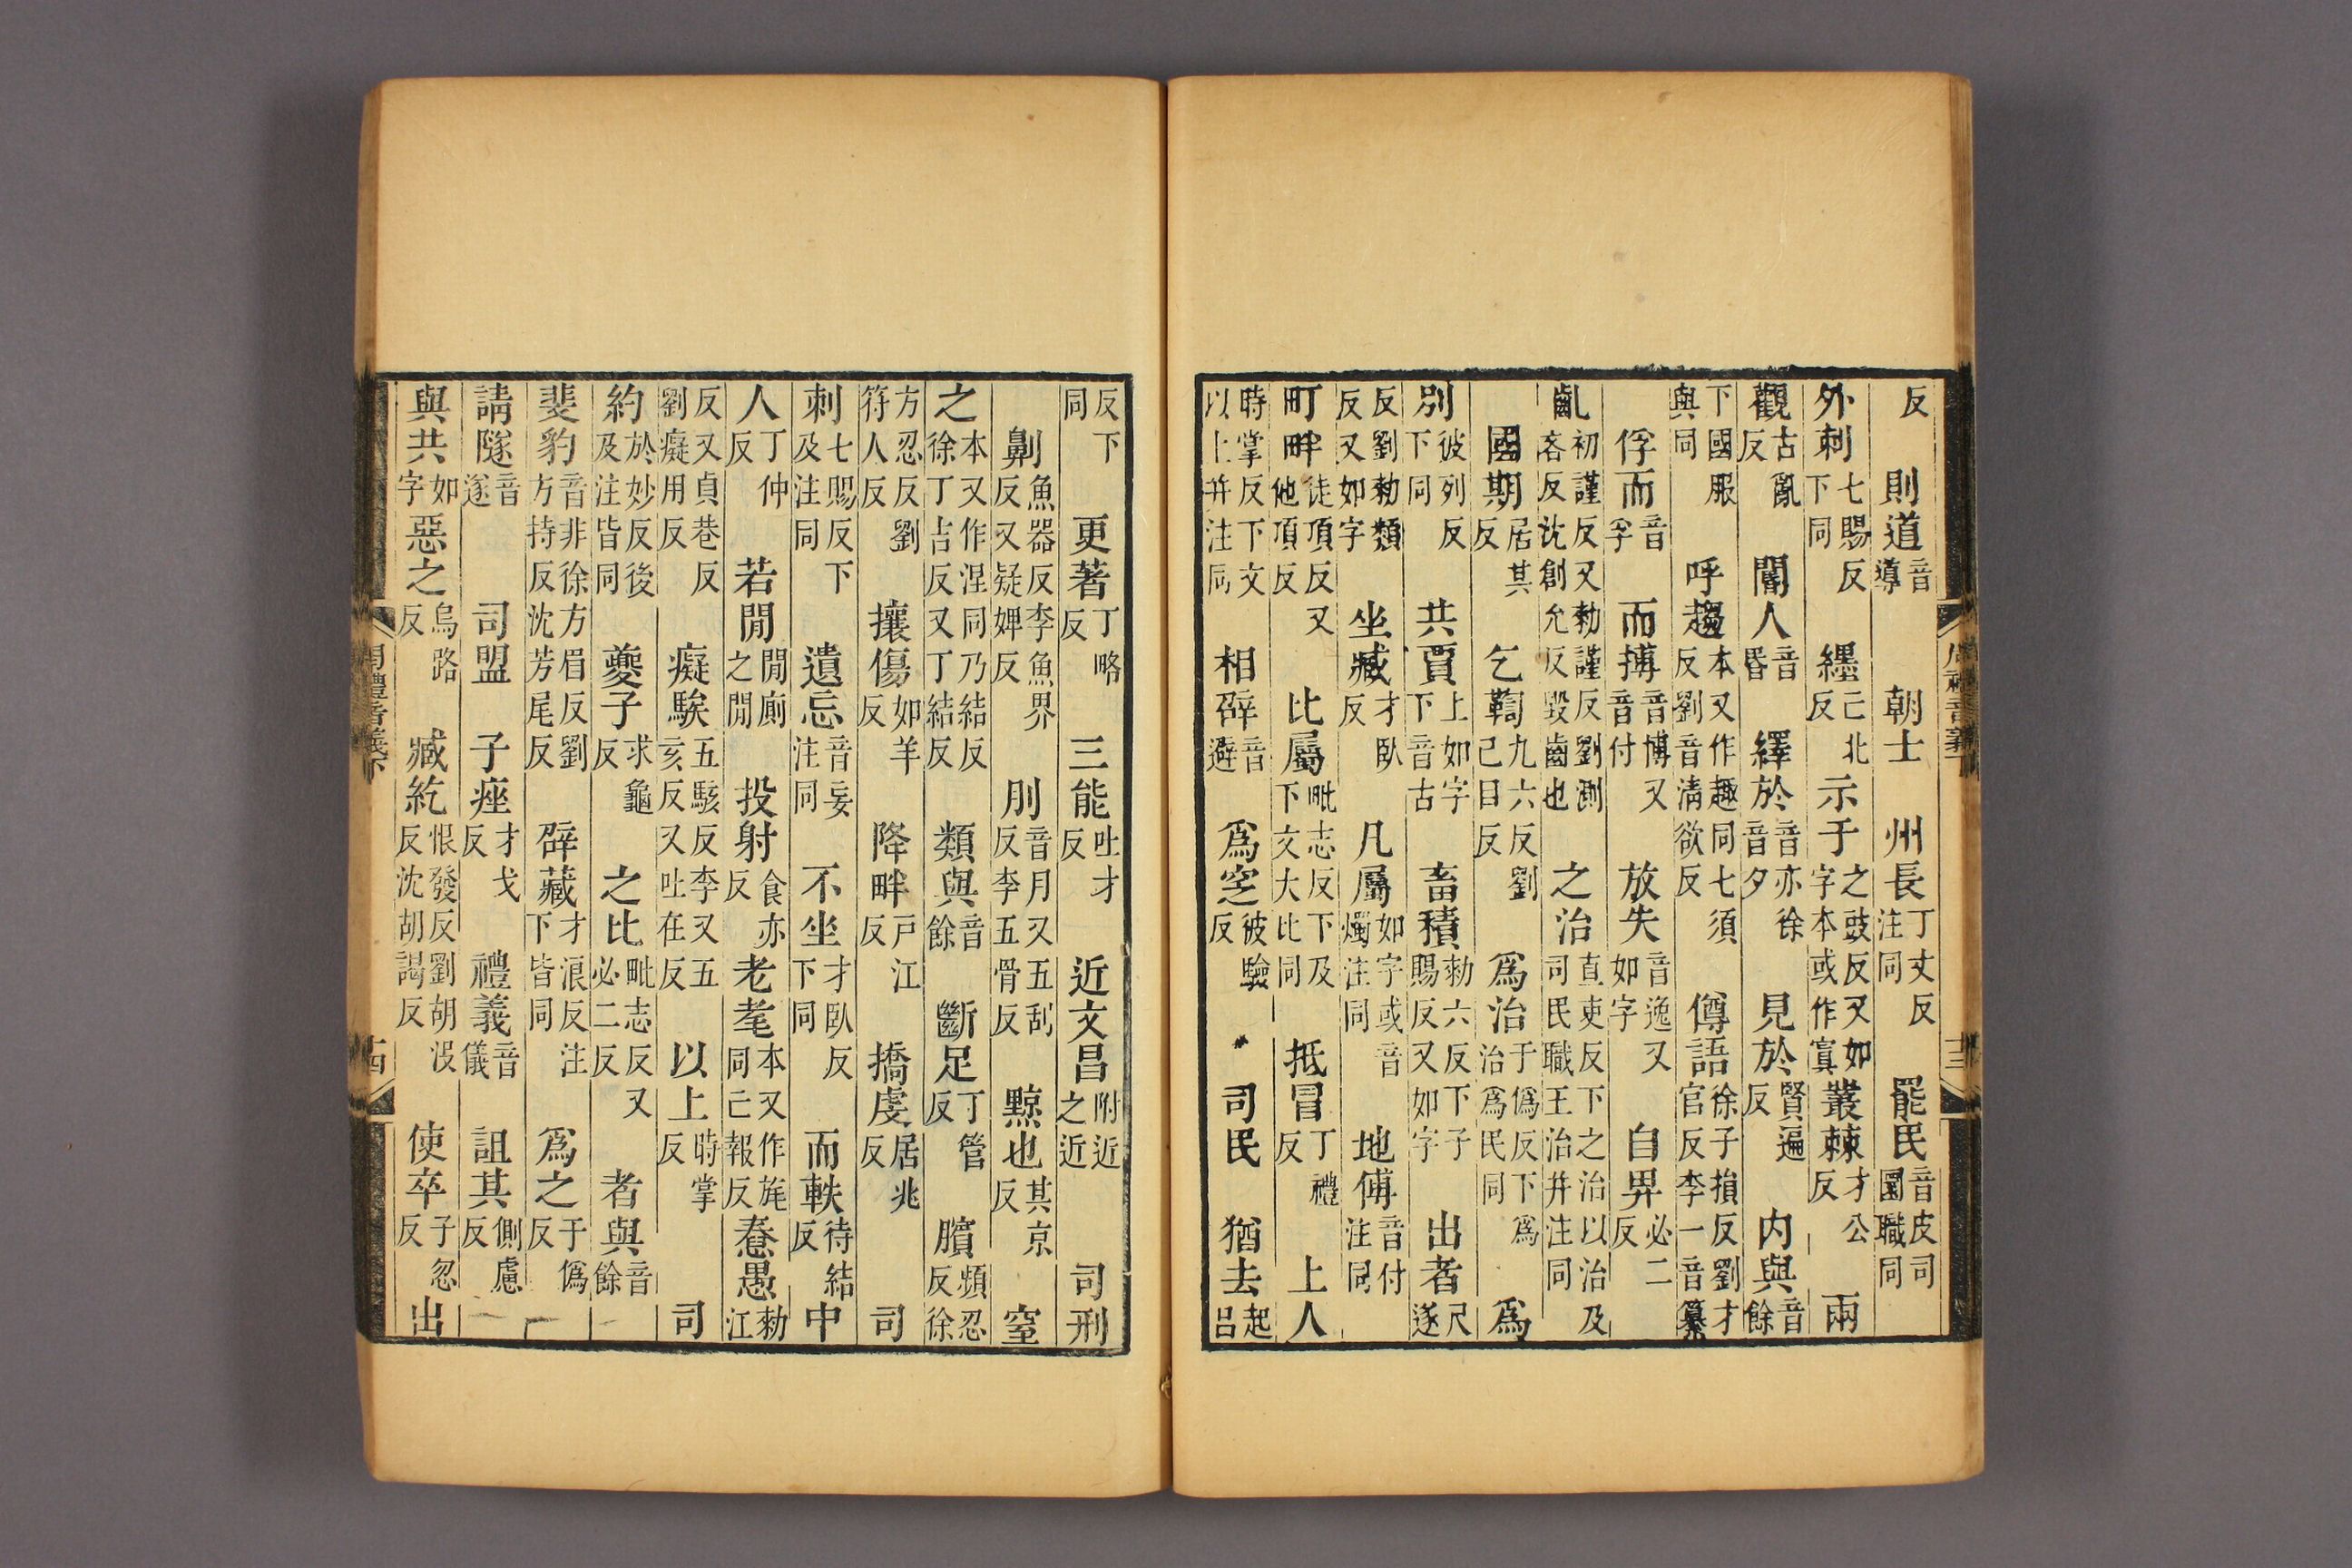 反則道音導朝士州長丁丈反注同罷民音皮司圜職同
外刺七賜反下同纆己北反示于之豉反又如字本或作寘叢棘才公反兩
觀古亂反閽人音昏繹於音亦徐音夕見於賢遍反内與音餘
下國服與同呼趨本又作趣同七須反劉音清欲反僔語徐子損反劉才官反李一音纂
俘而音孚而搏音博又音付放失音逸又如字自畀必二反
齓初謹反又勑謹反劉測吝反沈創允反毀齒也之治直吏反下之治以治及司民職王治幷注同
國期居其反乞鞫九六反劉己目反爲治于僞反下爲治爲民同爲
別彼列反下同共賈上如字下音古畜積勑六反下子賜反又如字出者尺遂
反劉勑類反又如字坐臧才臥反凡屬如字或音燭注同地傅音付注同
町畔徒頂反又他頂反比屬毗志反下及下文大比同抵冒丁禮反上人
時掌反下文以上幷注同相辟音避爲窆被驗反司民猶去起呂
反下同更著丁略反三能吐才反近文昌附近之近司刑
劓魚器反李魚界反又疑婢反刖音月又五刮反李五骨反黥也其京反窒
之本又作涅同乃結反徐丁吉反又丁結反類與音餘斷足丁管反臏頻忍反徐
方忍反劉符人反攘傷如羊反降畔戶江反撟虔居兆反司
刺七賜反下及注同遺忘音妄注同不坐才臥反下同而軼待結反中
人丁仲反若閒閒廁之閒投射食亦反老耄本又作旄同亡報反惷愚勑江
反又貞巷反劉癡用反癡騃五駭反李又五亥反又吐在反以上時掌反司
約於妙反後及注皆同夔子求龜反之比毗志反又必二反者與音餘
斐豹音非徐方眉反劉方持反沈芳尾反辟藏才浪反注下皆同爲之于僞反
請隧音遂司盟子痤才戈反禮義音儀詛其側慮反
與共如字惡之烏路反臧紇恨發反劉胡沒反沈胡謁反使卒子忽反出
周禮音義下
十四